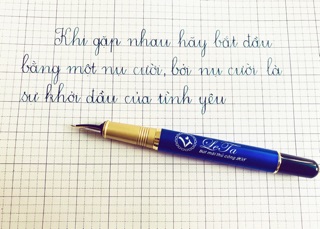 Khi gặp nhau hãy bắt đầu
bằng một nụ cười, bởi nụ cười là
sự khởi đầu của tình yêu
Lê Ta